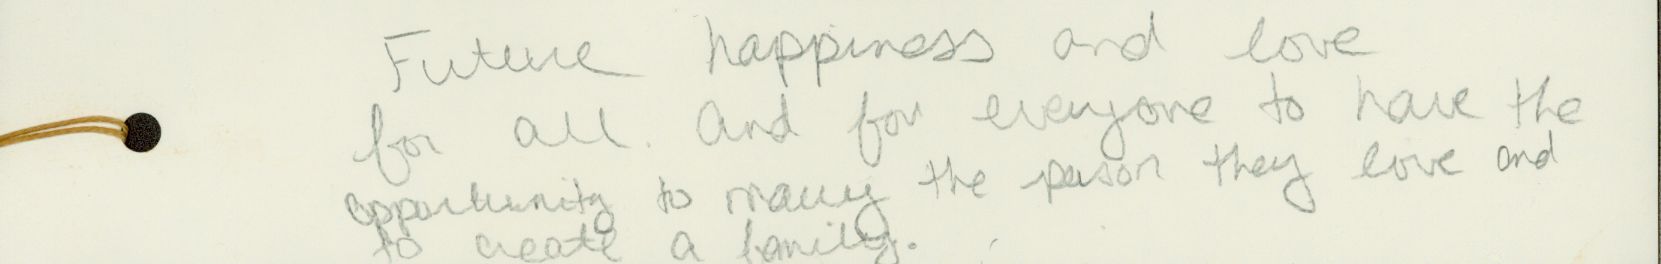 Future happiness and love
for all. And for everyone to have the
opportunity to marry the person they love and
to create a family.